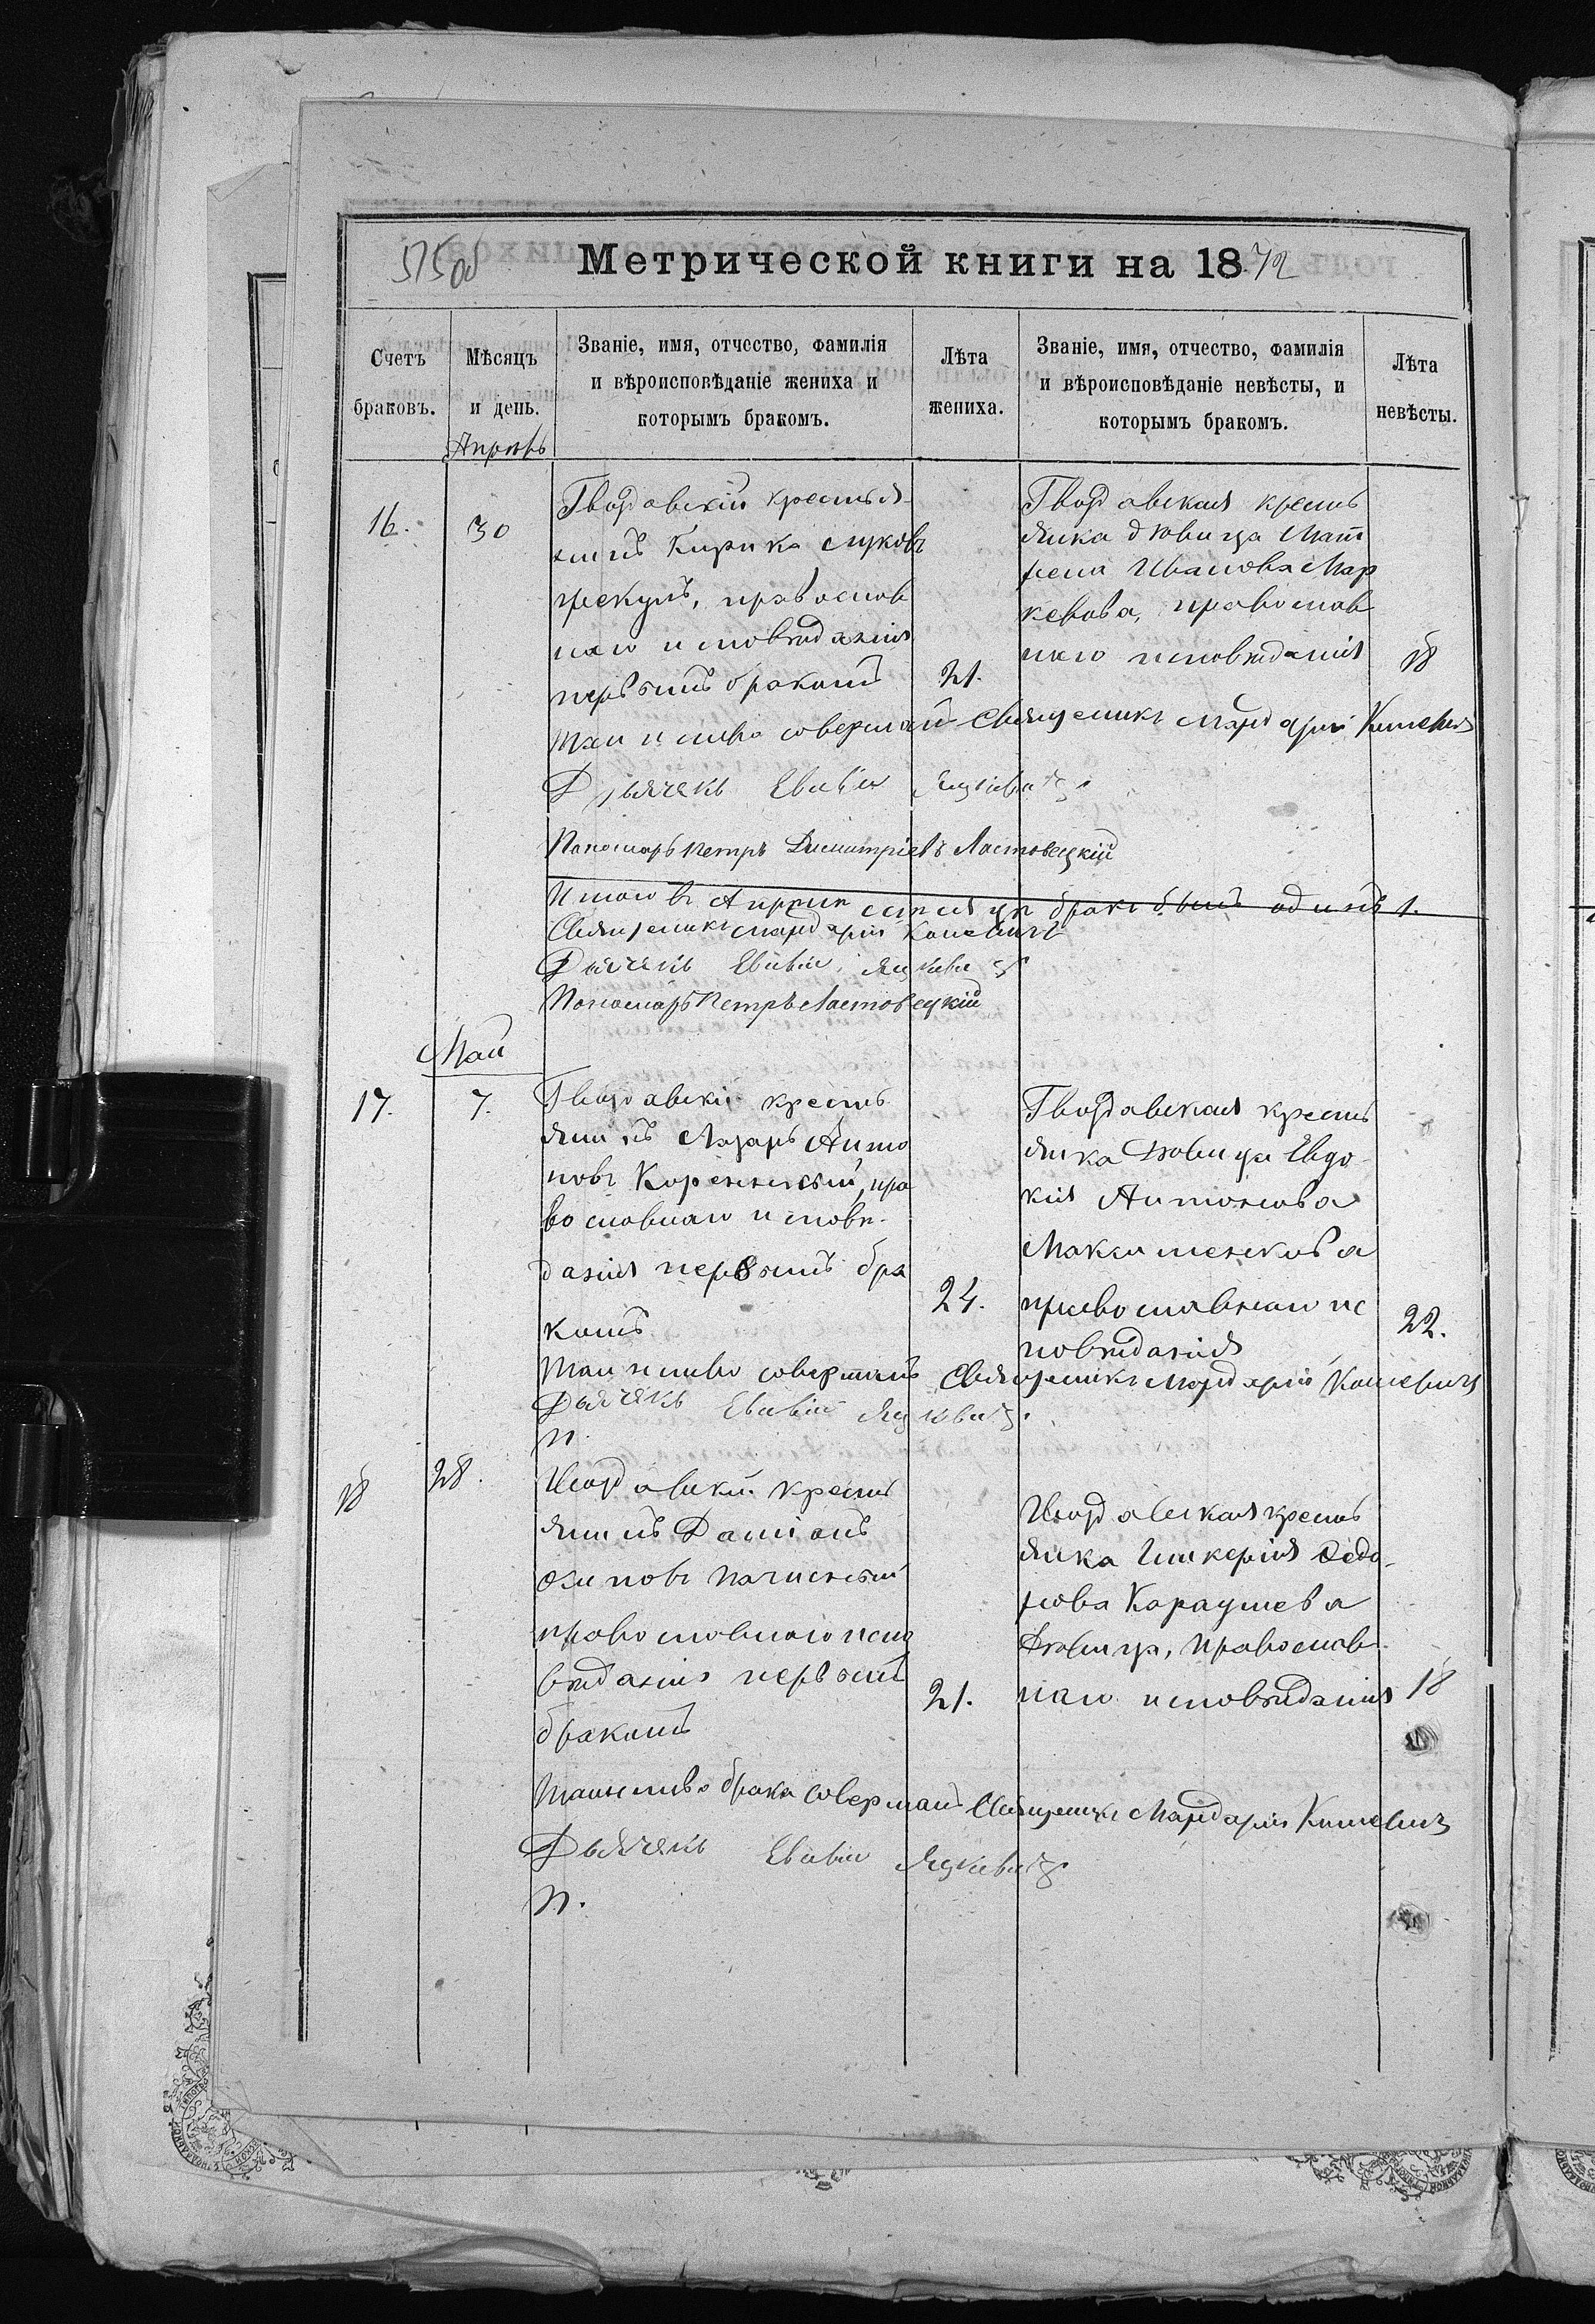 Метрической книги на 1872
Счетъ браковъ.
Мѣсяцъ и день.
Званіе, имя, отчество, фамилія
и вѣроисповѣданіе жениха и
которымъ бракомъ.
Лѣта жениха.
Званіе, имя, отчество, фамилія
и вѣроисповѣданіе невѣсты, и
которымъ бракомъ.
Лѣта невѣсты.
Апрѣль
16.
30
Гвоздавскій крестья-
нинъ Кирикъ
православ
наго исповѣданія
первымъ бракомъ
21.
Гвоздавская кресть
янка дѣвица Мат
рена Иванова Мар
кевова, православ
наго исповѣданія
18
Таинство совершалъ Священикъ Мардарій
Дьячекъ
Пономарь Петръ Димитріевъ Ластовецкій
Итого въ Апрѣлѣ мѣсяцѣ бракъ былъ одинъ 1.
Священикъ Мардарій
Дьячекъ
Пономарь Петръ Ластовецкій
Май
17.
7.
Гвоздавскій кресть
янинъ Лазарь Анто
новъ Коренный, пра
вославнаго исповѣ-
данія первымъ бра
комъ
24.
Гвоздавская кресть
янка дѣвица Евдо
кія Антонова
Максименкова
православнаго ис
повѣданія
22.
Таинство совершалъ Священикъ Мардарій
Дьячекъ
П.
18
28.
Гвоздавскій кресть
янинъ Даміанъ
православнаго испо
вѣданія первымъ
бракомъ
21.
Гвоздавская кресть
янка Гликерія Ѳедо-
рова Караушева
дѣвица, православ-
наго исповѣданія
18
Таинство брака совершалъ Священикъ Мардарій
Дьячекъ
П.